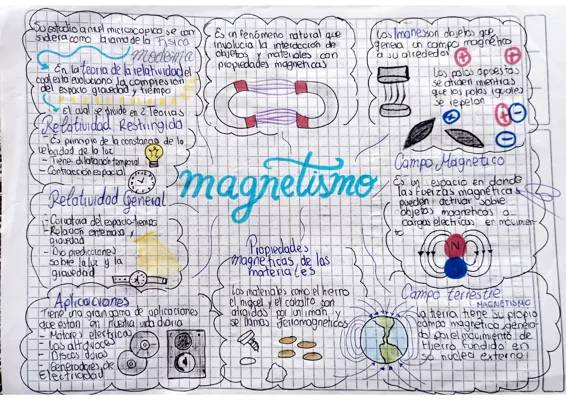 Su estudio a nivel microscopico se con
sidera como la rama de la Fisica
moderna
En la teoria de la relatividad el
cual esta evoluciono la compresion
del espacio gravedad y tiempo
El cual se divide en 2 Teorias
Relatividad Restringida
- Es principio de la constancia de la
velocidad de la luz
- Tiene dilatacion temporal
- Contraccion espacial
Relatividad General
- Curvatura del espacio-tiempo
- Relacion entre masa y
gravedad
- Dio predicciones
sobre la luz y la
gravedad
Aplicaciones
Tiene una gran gama de aplicaciones
que estan en nuestra vida diaria
- Motores electricos
- Los altavoces
- Discos duros
- Generadores de
Electricidad
Es un fenómeno natural que
involucra la interaccion de
objetos y materiales con
propiedades magneticas
magnetismo
Propiedades
magneticas de los
materiales
Los materiales como el hierro
el niquel y el cobalto son
atraidos por un iman y
se llaman ferromagneticos
Los Imanes son objetos que
genera un campo magnetico
a su alrededor
Los polos opuestos
se atraen mientras
que los polos iguales
se repelan
Campo Magnetico
Es un espacio en donde
las fuerzas magneticas
pueden actuar sobre
objetos magneticos o
cargas electricas en movimien-
to
N
Campo terrestre
MAGNETISMO
La tierra tiene su propio
campo magnetico genera-
do por el movimiento de
Hierro fundido en
su nucleo externo